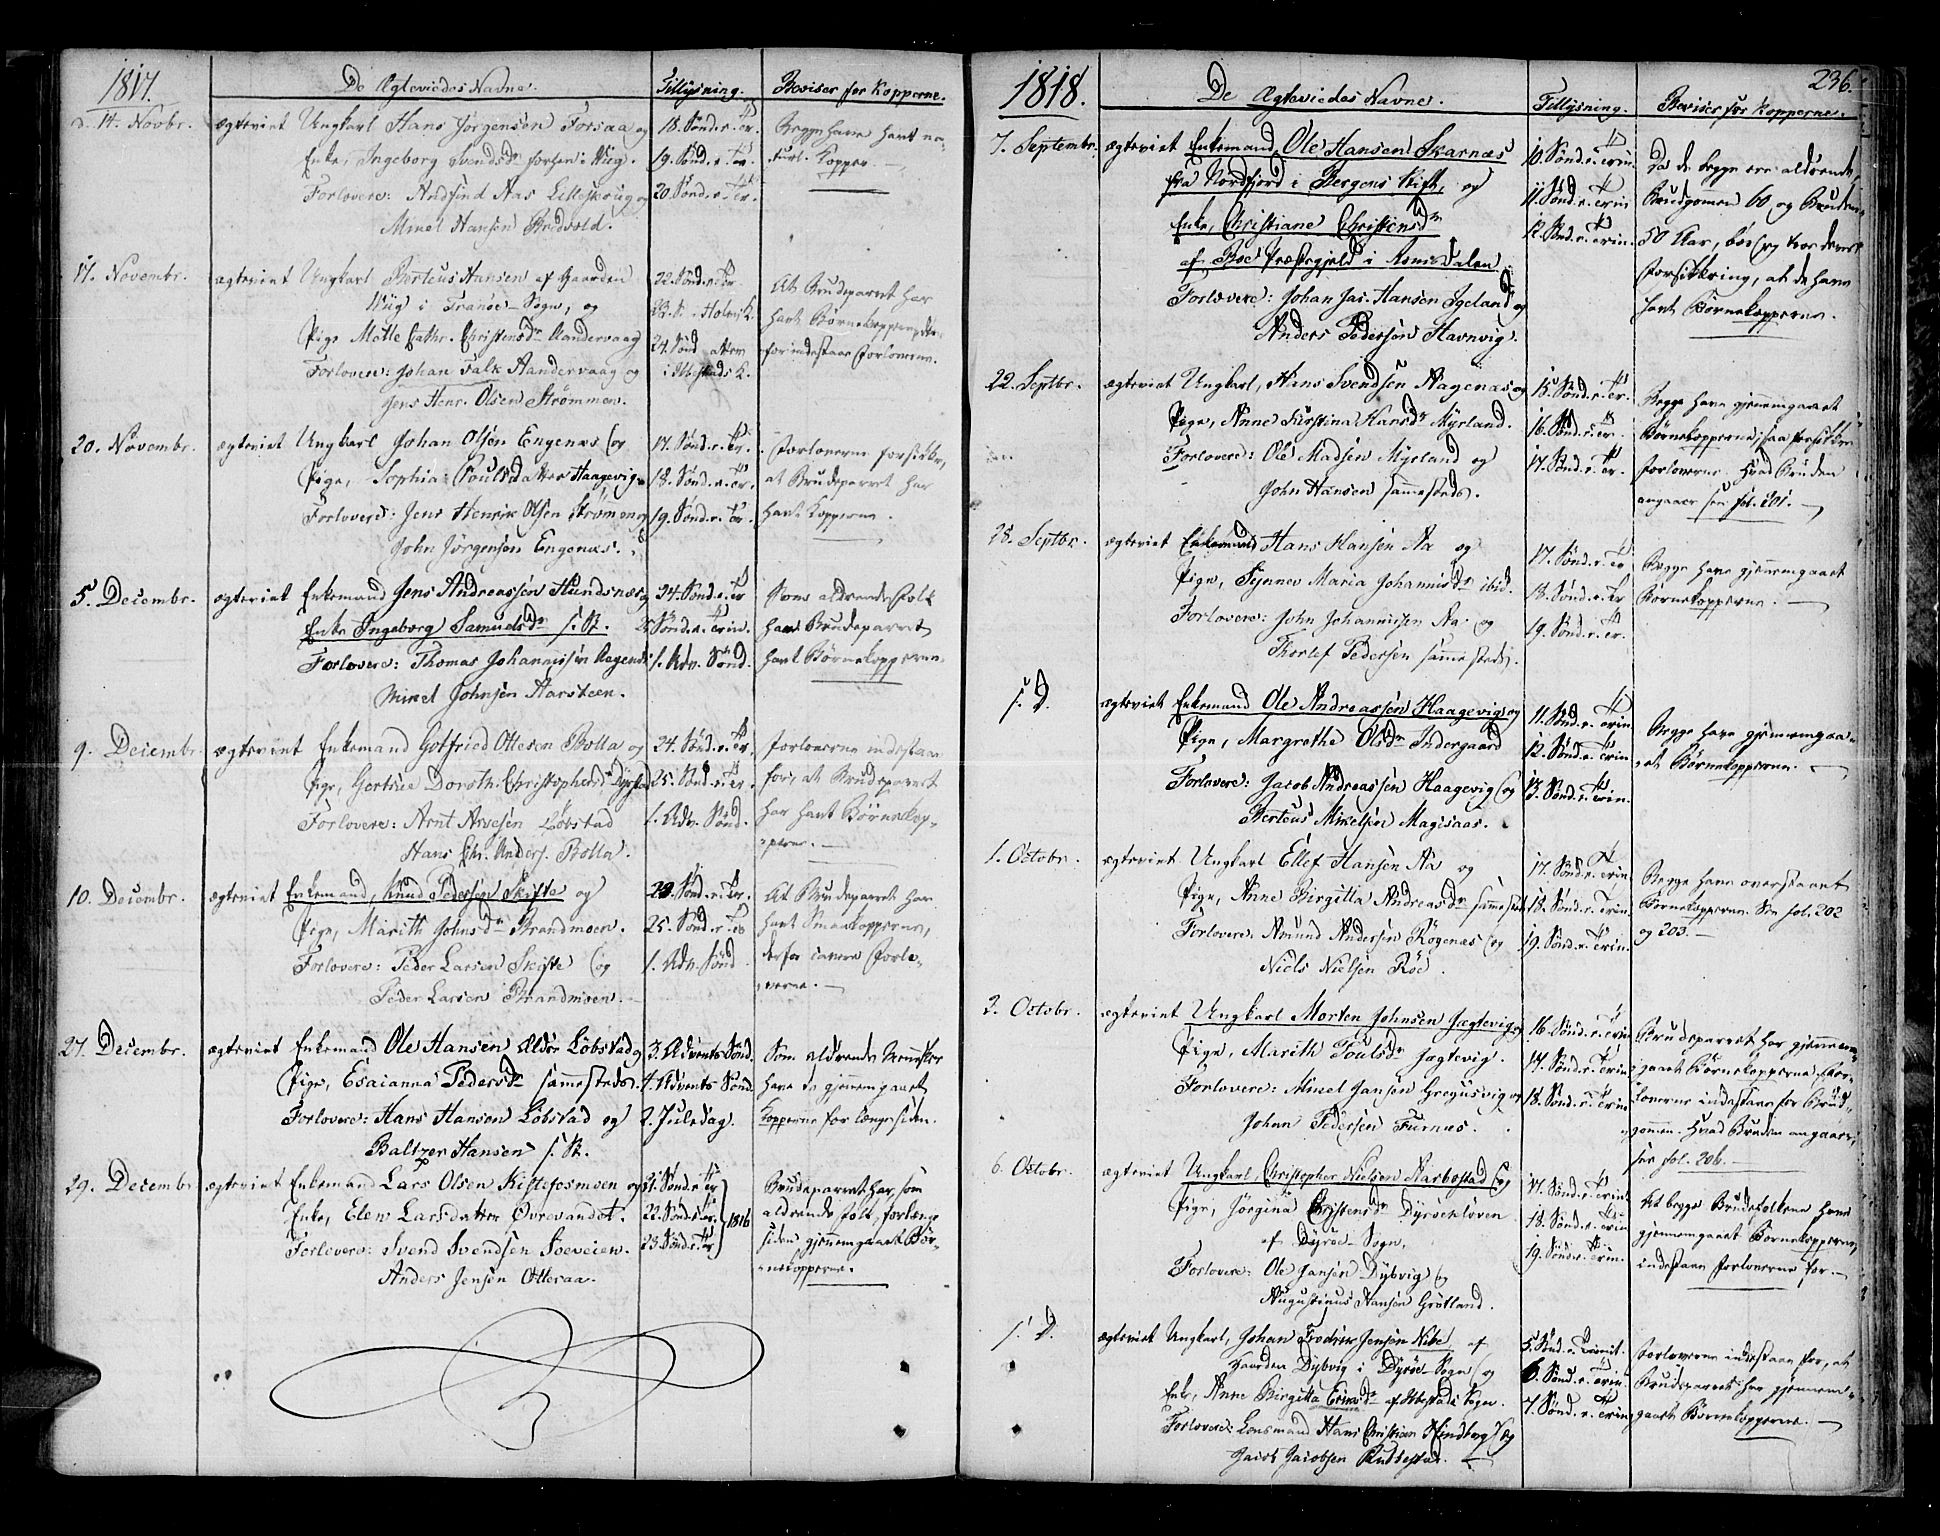 1817.
De Ægteviedes Navne.
Tillysning.
Beviser for Kopperne.
d. 14. Novbr.
ægteviet Ungkarl Hans Jörgensen Forsaa og
Enke, Ingeborg Svendsdr
Forlovere:
Mikel Hansen
18. Sönd. e. Tr.
19. Sönd. e. Tr.
20. Sönd. e. Tr.
Begge have havt na-
turl. Kopper.
17. Novembr.
ægteviet Ungkarl Berteus Hansen af Gaarden
i Tranöe Sogn, og
Pige Mette Cathr. Christensdr Aandervaag
Forlovere: Johan Falk Aandervaag og
Jens Henr. Olsen Strömmen.
22. Sönd. e. Tr
24. Sönd
At Brudeparret har
havt Börnekopperne, der-
for indestaae Forloverne.
20. Novembr.
ægteviet Ungkarl Johan Olsen Engenæs og
Pige, Sophia Poulsdatter Haagevig.
Forlovere: Jens Henrik Olsen Strömen og
John Jörgensen Engenæs.
17. Sönd. e. Tr.
18. Sönd. e. Tr.
19. Sönd. e. Tr.
Forloverne forsikkre,
at Brudeparret har
havt Kopperne.
5. Decembr.
ægteviet Enkemand Jens Andreassen Hundsnæs og
Enke Ingeborg Samuelsdr s. St.
Forlovere: Thomas Johannissen Aagenæs
Mikel Johnsen Aarsteen.
24. Sönd. e. Tr
25 Sönd. e. Trin.
1. Adv. Sönd.
Som aldrende Folk
have Brudeparret
havt Börnekopperne.
9. Decembr.
ægteviet Enkemand Gotfried Ottesen Bolla og
Pige, Gertrue Doroth. Christophersdr Dyrstad
Forlovere: Arnt Arnesen Löbstad
Hans Chr. Anders. Bolla.
24. Sönd. e. Tr.
25. Sönd. e. Tr.
1. Adv. Sönd.
Forloverne indestaae
for, at Brudeparret
har havt Börnekop-
perne.
10. Decembr.
ægteviet Enkemand, Knud Pedersen Skifte og
Pige, Marith Johnsdr Brandmoen.
Forlovere: Peder Larsen Skifte og
Peder Larsen Brandmoen.
24. Sönd. e. Tr.
25. Sönd. e. Tr
1. Adv. Sönd
At Brudeparret har
havt Smaakopperne,
derfor cavere Forlo-
verne.
27. Decembr.
ægteviet Enkemand Ole Hansen Ældre Löbstad og
Pige, Esaianna Pedersdr sammesteds.
Forlovere: Hans Hansen Löbstad og
Baltzer Hansen s. St.
3. Advents Sönd.
4. Advents Sönd
2. Juledag.
Som aldrende Mennesker
have de gjennemgaaet
Kopperne for længe siden.
29. Decembr
ægteviet Enkemand Lars Olsen Kistefosmoen og
Enke, Elen Larsdatter Övrevandet.
Forlovere: Svend Svendsen Soeveien.
Anders Jensen Otteraa.
21. Sönd. e Tr
22. Sönd. e Tr.
23. Sönd. e Tr.
1816
Brudeparret har, som
aldrende Folk, forlænge
siden gjennemgaaet Bör-
nekopperne.
1818.
De Ægteviedes Navne.
Tillysning.
Beviser for Kopperne.
236.
7. Septembr.
ægteviet Enkemand Ole Hansen Skarnæs
fra Nordfjord i Bergens Stift, og
Enke, Christiane Christensdr
af Boe Præstegjeld i Romsdalen.
Forlovere: Johan Jac. Hansen Igeland og
Anders Pedersen Havnvig.
10. Sönd. e. Trin.
11. Sönd. e. Trin
12. Sönd. e. Trin.
Da de begge ere aldrende,
Brudgomen 60 og Bruden
50 Aar,
Forsikkring, at de have
havt Börnekopperne.
22. Septbr.
ægteviet Ungkarl, Hans Svendsen Aagenæs og
Pige, Anne Kirstina Hansdr Myrland.
Forlovere: Ole Madsen Myrland og
John Hansen sammesteds.
15. Sönd. e. Tr.
16. Sönd. e. Tr.
17. Sönd. e. Tr.
Begge have gjennemgaaet
Börnekopperne, saa forsikkre
Forloverne. Hvad Bruden
angaaer see fol. 201.
28. Septbr.
ægteviet Enkemand Hans Hansen Aa og
Pige, Synnev Maria Johannisdr ibid.
Forlovere: John Johannissen Aa og
Thorlef Pedersen sammesteds.
17. Sönd. e. Tr
18. Sönd. e. Tr
19. Sönd. e. Tr.
Begge have gjennemgaaet
Börnekopperne.
s. D.
ægteviet Enkemand Ole Andreassen Haagevig og
Pige, Margrethe Olsdr Indergaard
Forlovere: Jacob Andreassen Haagevig og
Berteus Mikelsen Magisaas.
11. Sönd. e. Trin.
12. Sönd. e. Trin.
13. Sönd. e. Trin.
Begge have gjennemgaa-
et Börnekopperne.
1. Octobr.
ægteviet Ungkarl Ellef Hansen Aa og
Pige, Anne Birgitta Andreasdr sammesteds
Forlovere. Amund Andersen Rögenæs og
Niels Nielsen Röe.
17. Sönd. e. Trin
18. Sönd. e. Trin.
19. Sönd. e. Trin.
Begge have overstaaet
Börnekopperne. See fol. 202
og 203.
2. Octobr.
ægteviet Ungkarl Morten Johnsen Jægtevig og
Pige, Marith Poulsdr Jægtevig.
Forlovere: Mikel Jansen Gregusvig og
Johan Pedersen Furnæs.
16. Sönd. e. Trin
17. Sönd. e. Trin
18. Sönd. e. Trin
Brudeparret har gjennem-
gaaet Börnekopperne. For-
loverne indestaae for Brud-
gommen. Hvad Bruden angaaer,
see fol. 206.
6. Octobr.
ægteviet Ungkarl, Christopher Nielsen Narbostad og
Pige, Jörgina Christensdr Dyröeklöven
af Dyröe Sogn,
Forlovere: Ole Jansen Dybvig og
Augustinus Hansen Grötland.
17. Sönd. e. Trin.
18. Sönd. e. Trin.
19. Sönd. e. Trin.
At begge Brudefolkene have
gjennemgaaet Börnekopperne,
indestaae Forloverne for.
s. D.
ægteviet Ungkarl, Johan Fredrik Jensen Nibe af
Gaarden Dybvig i Dyröe Sogn og
Enke, Anne Birgitta Ericsdr af Ibestads Sogn.
Forlovere: Lensmand Hans Christian Hindberg og
Jacob Jacobsen
5. Sönd. e. Trinit.
6. Sönd. e. Trin.
7. Sönd. e. Trin.
Forloverne indestaae for, at
Brudeparret har gjennem-
gaaet Börnekopperne.